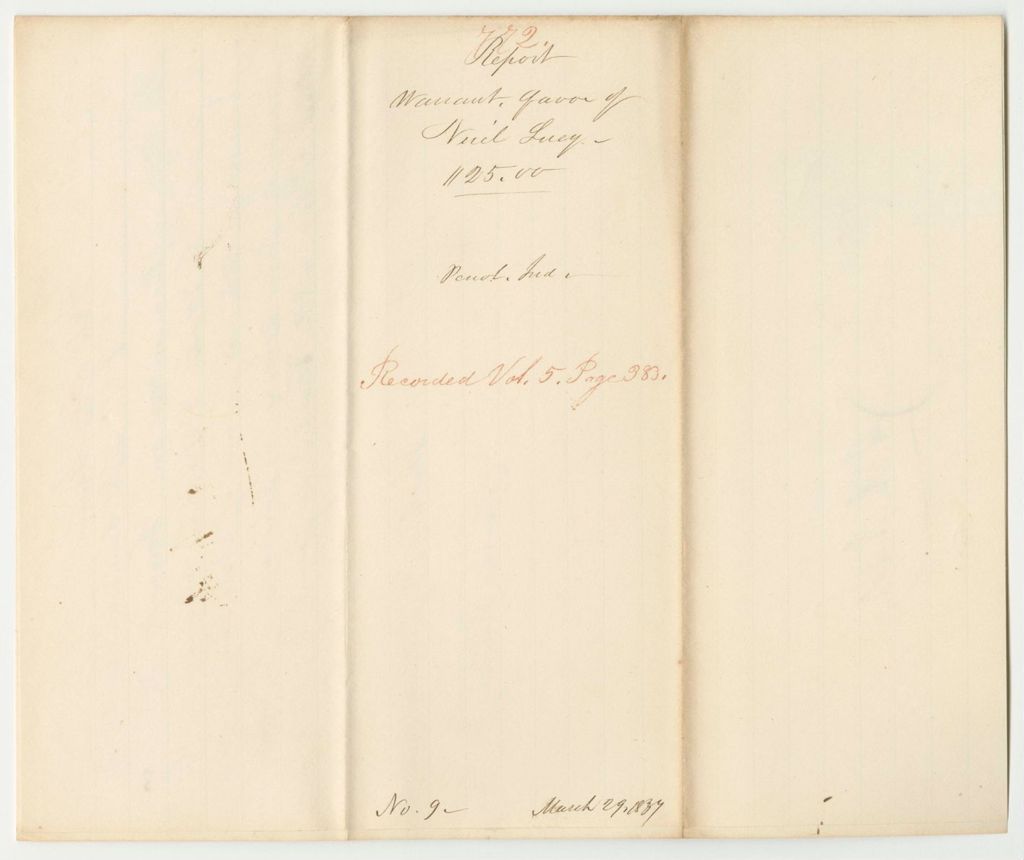 772.
Report
Warrant, favor of
Neil Lucy –
1125.00
Penob. Ind. –
Recorded Vol. 5. Page 383.
No. 9 – March 29, 1837